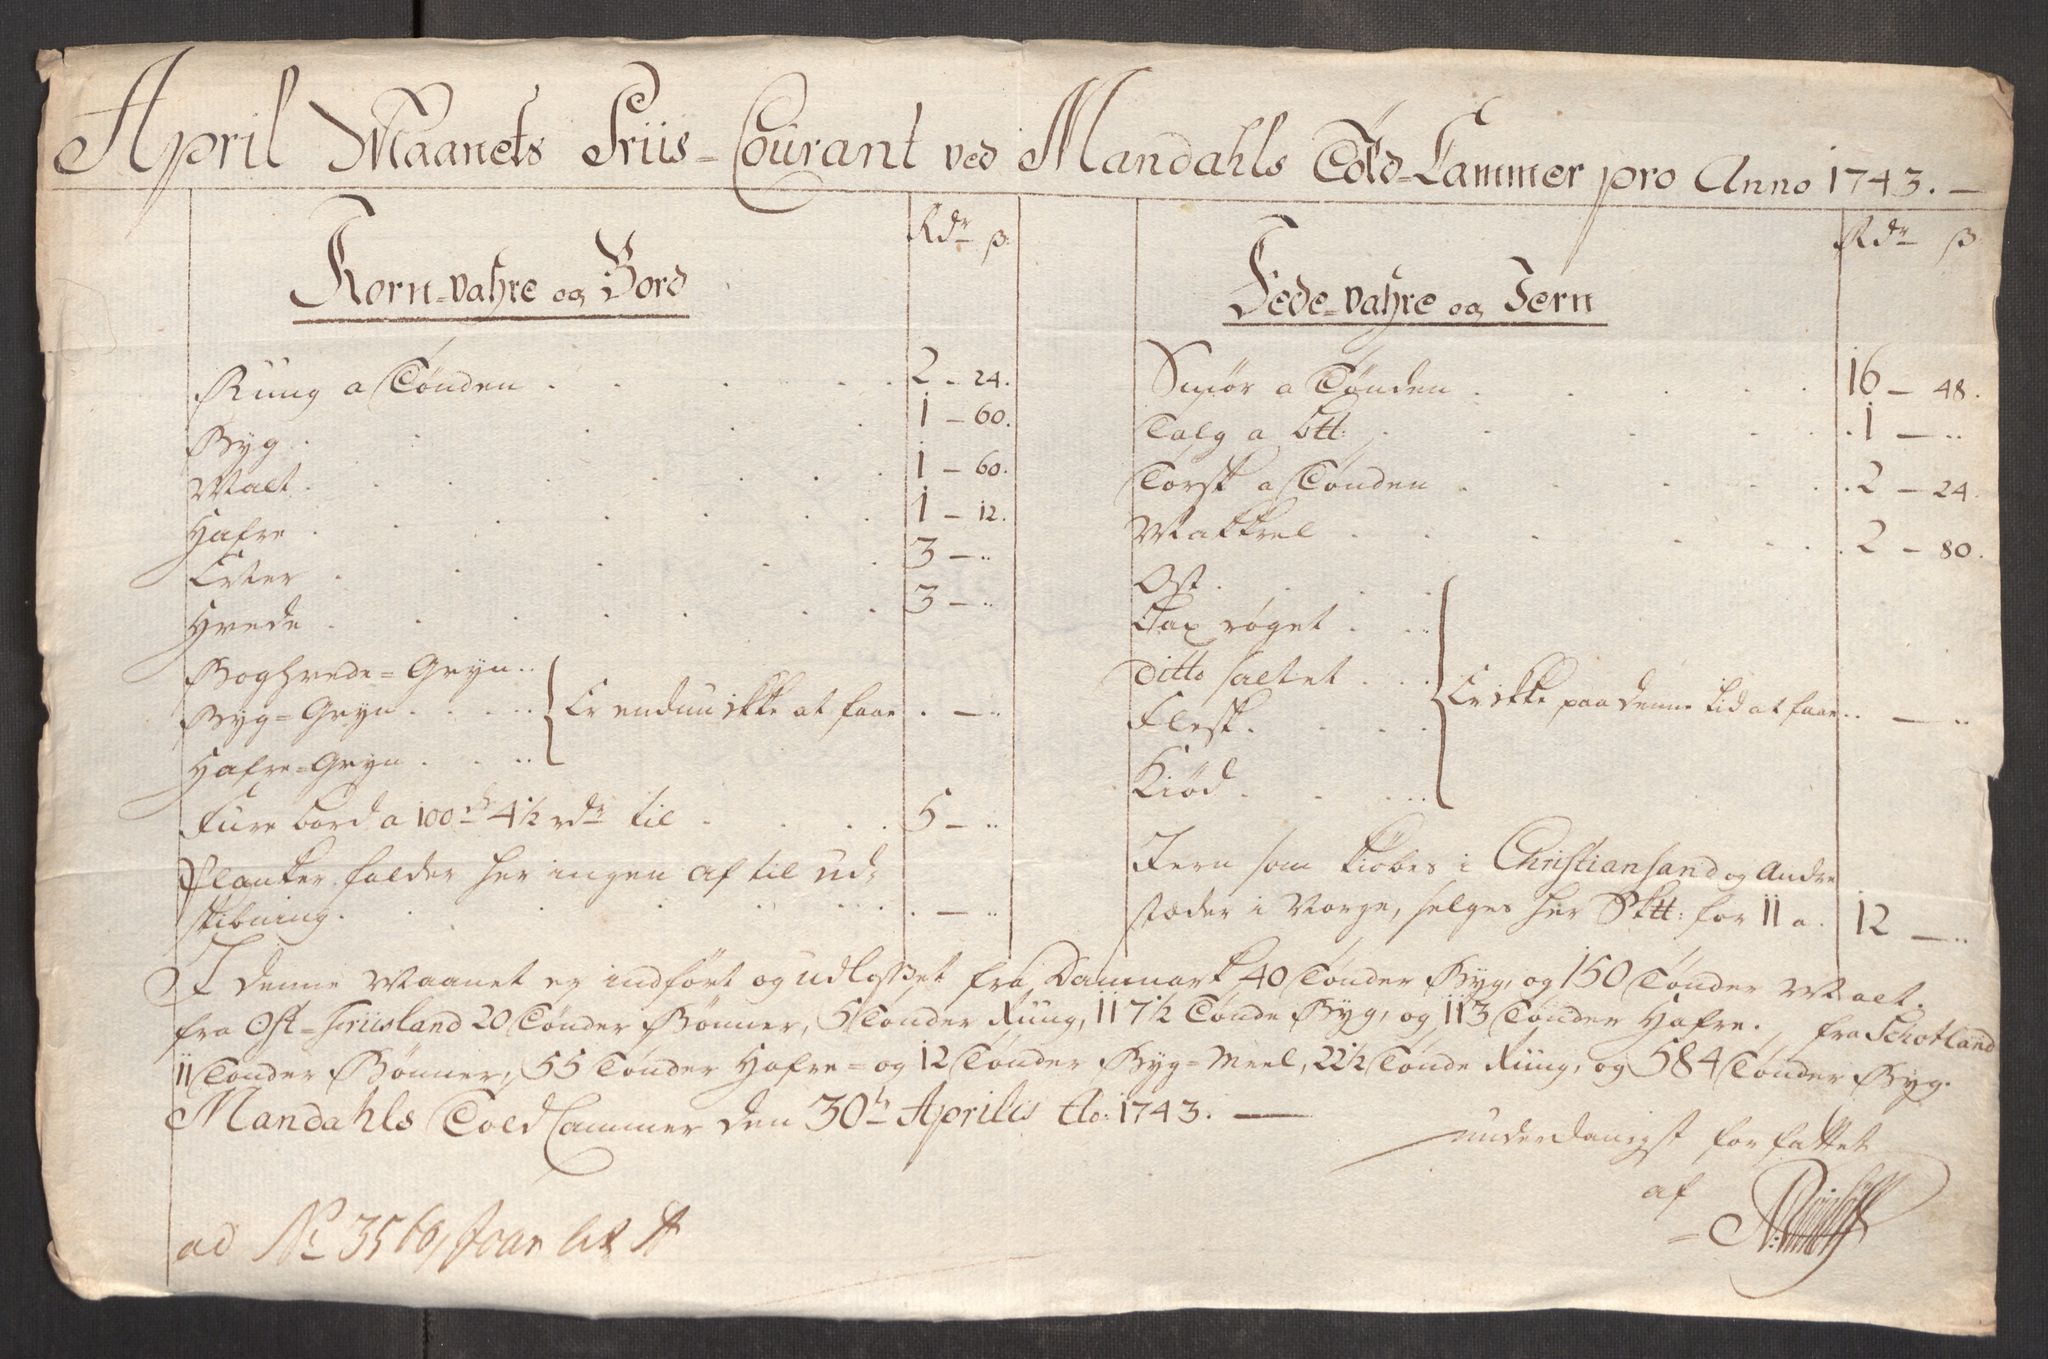 April Maanets Priis-Courant ved Mandahls Told-Cammer pro Anno 1743. —
Rdr ß:
Korn-vahre og Bord
Rung a Tønden . . . . . 2 - 24.
Byg . . . . . 1 - 60.
Malt . . . . . 1 - 60.
Hafre . . . . . 1 - 12.
Erter . . . . . 3 - ..
Hvede . . . . . 3 - ..
Boghvede=Gryn ..
Byg=Gryn . . . . Er endnu ikke at faae . - ..
Hafre=Gryn . . ..
Fure bord a 100de 4½ rdr til . . . . 5 - ..
Planker falder her ingen af til ud-
skibning . . . . . - ..
Rdr ß:
Fede-vahre og Jern
Smør a Tønden . . . . . 16 - 48.
Talg a btt: . . . . . 1 - ..
Torsk a Tønden . . . . . 2 - 24.
Makkrel . . . . . 2 - 80.
Ost . . . .
Lax røget . . ..
Ditto saltet . . . Er ikke paa denne tid at faae .. - ..
Flesk . . . .
Kiød . . ..
Jern som kiøbes i Christiansand og Andre
stæder i Norge, selges her Sktt: for 11 a . 12 - ..
I denne Maanet er indført og udlosset fra Danmark 40 Tønder Byg, og 150 Tønder Malt.
fra Ost=Friisland 20 Tønder Bønner, 5 Tønder Rung, 117½ Tønde Byg, og 113 Tønder Hafre., fra Schotland
11 Tønder Bønner, 55 Tønder Hafre= og 12 Tønder Byg=Meel, 22½ Tønde Rüng, og 584 Tønder Byg.
Mandahls Told Cammer den 30te Aprilis Ao: 1743. —
underdanigst forfattet
af
ad No 3560,